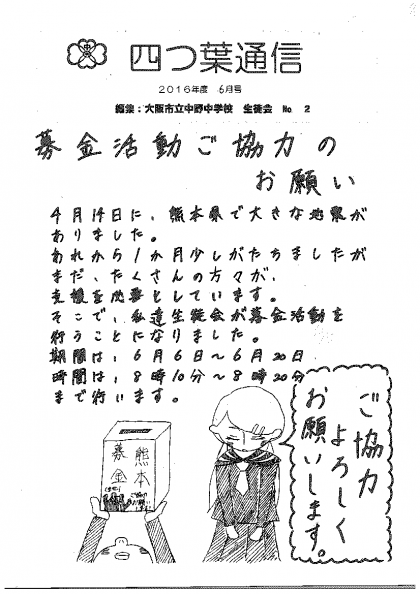 四つ葉通信
2016年度 6月号
編集:大阪市立中野中学校 生徒会 No 2
募金活動ご協力の
お願い
4月14日に、熊本県で大きな地震が
ありました。
あれから1か月少しがたちましたが
まだ、たくさんの方々が、
支援を必要としています。
そこで、私達生徒会が募金活動を
行うことになりました。
期間は、6月6日～6月20日
時間は、8時10分～8時20分
まで行います。
ご協力
よろしく
お願いします。
熊本
募金